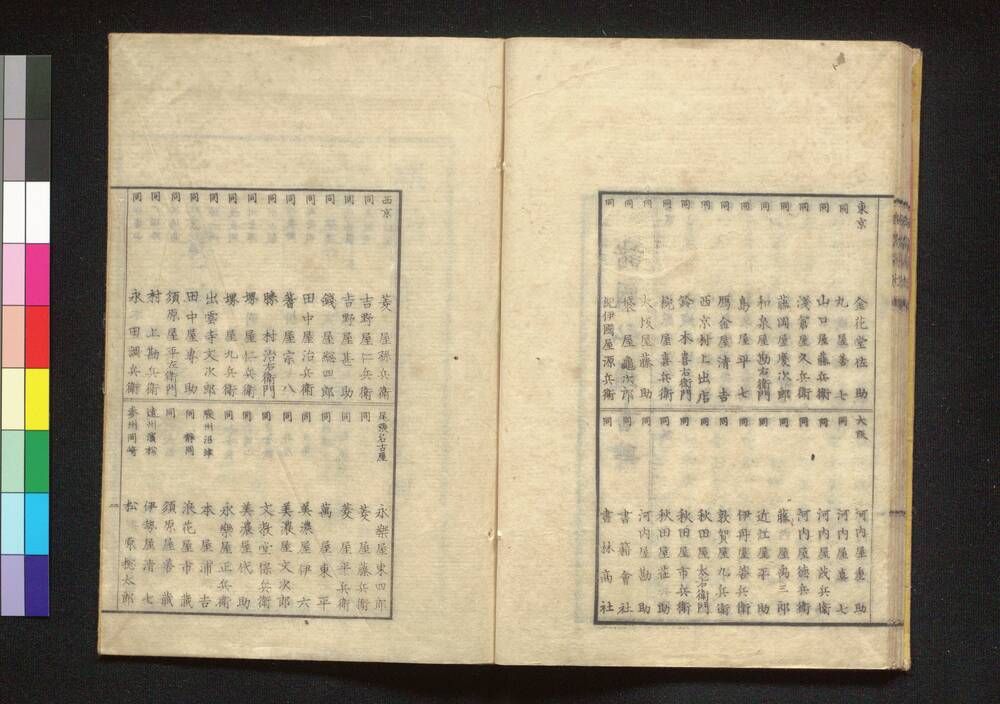 東京 金花堂佐助
同 丸屋善七
同 山口屋藤兵衛
同 淺倉屋久兵衛
同 藤岡屋慶次郎
同 和泉屋勘右衛門
同 島屋平七
同 鴈金屋清吉
同 西京村上出店
同 鈴木喜右衛門
同 椀屋喜兵衛
同 大成屋藤助
同 袋屋龜次郎
同 紀伊國屋源兵衛
大阪 河内屋重助
同 河内屋真七
同 河内屋茂兵衛
同 河内屋德兵衛
同 藤屋禹三郎
同 近江屋平助
同 伊丹屋善兵衛
同 敦賀屋九兵衛
同 秋田屋太右衛門
同 秋田屋市兵衛
同 秋田屋莊助
同 河内屋勘助
同 書籍會社
同 書林商社
西京 菱屋孫兵衛
同 吉野屋仁兵衛
同 吉野屋甚助
同 錢屋總四郎
同 田中屋治兵衛
同 蓍屋宗八
同 勝村治右衛門
同 堺屋仁兵衛
同 堺屋九兵衛
同 出雲寺文次郎
同 田中屋專助
同 須原屋平左衛門
同 村上勘兵衛
同 永田調兵衛
尾張名古屋 永樂屋東四郎
同 菱屋藤兵衛
同 菱屋平兵衛
同 萬屋東平
同 美濃屋伊六
同 美濃屋文次郎
同 文敎堂保兵衛
同 美濃屋代助
同 永樂屋正兵衛
駿州沼津 本屋浦吉
同靜岡 浪花屋市藏
同 須原屋善藏
遠州濱松 伊勢屋清七
參州岡崎 松原槌太郎
二